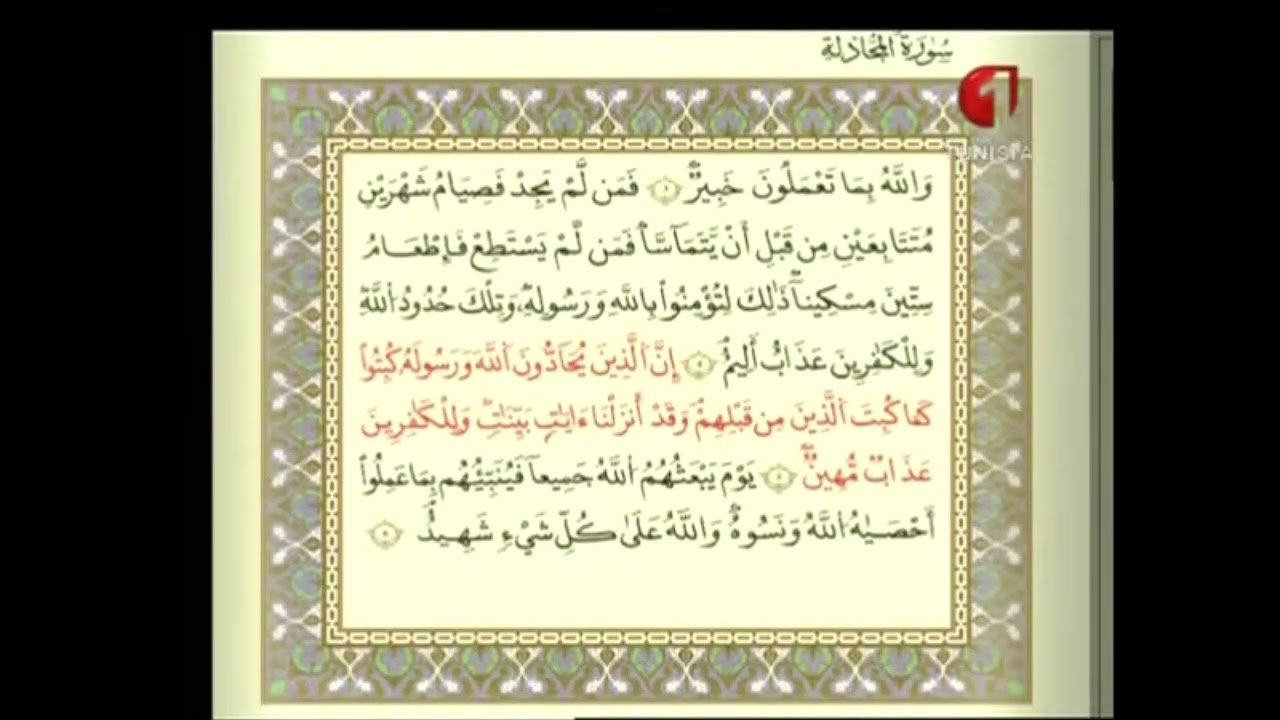 سُورَةُ المُجَادلَةِ
1
TUNISIA
وَاللَّهُ بِمَا تَعْمَلُونَ خَبِيرٌ فَمَن لَّمْ يَجِدْ فَصِيَامُ شَهْرَيْنِ
مُتَتَابِعَيْنِ مِن قَبْلِ أَنْ يَّتَمَآسَّا فَمَن لَّمْ يَسْتَطِعْ فَإِطْعَامُ
سِتِّينَ مِسْكِيناً ذَٰلِكَ لِتُؤْمِنُوا بِاللَّهِ وَرَسُولِهِ وَتِلْكَ حُدُودُ اللَّهِ
وَلِلْكَٰفِرِينَ عَذَابٌ أَلِيمٌ إِنَّ الَّذِينَ يُحَآدُّونَ اللَّهَ وَرَسُولَهُ كُبِتُوا
كَمَا كُبِتَ الَّذِينَ مِن قَبْلِهِمْ وَقَدْ أَنزَلْنَا ءَايَٰتٍ بَيِّنَٰتٍ وَلِلْكَٰفِرِينَ
عَذَابٌ مُّهِينٌ يَوْمَ يَبْعَثُهُمُ اللَّهُ جَمِيعاً فَيُنَبِّئُهُم بِمَا عَمِلُوا
أَحْصَىٰهُ اللَّهُ وَنَسُوهُ وَاللَّهُ عَلَىٰ كُلِّ شَيْءٍ شَهِيدٌ